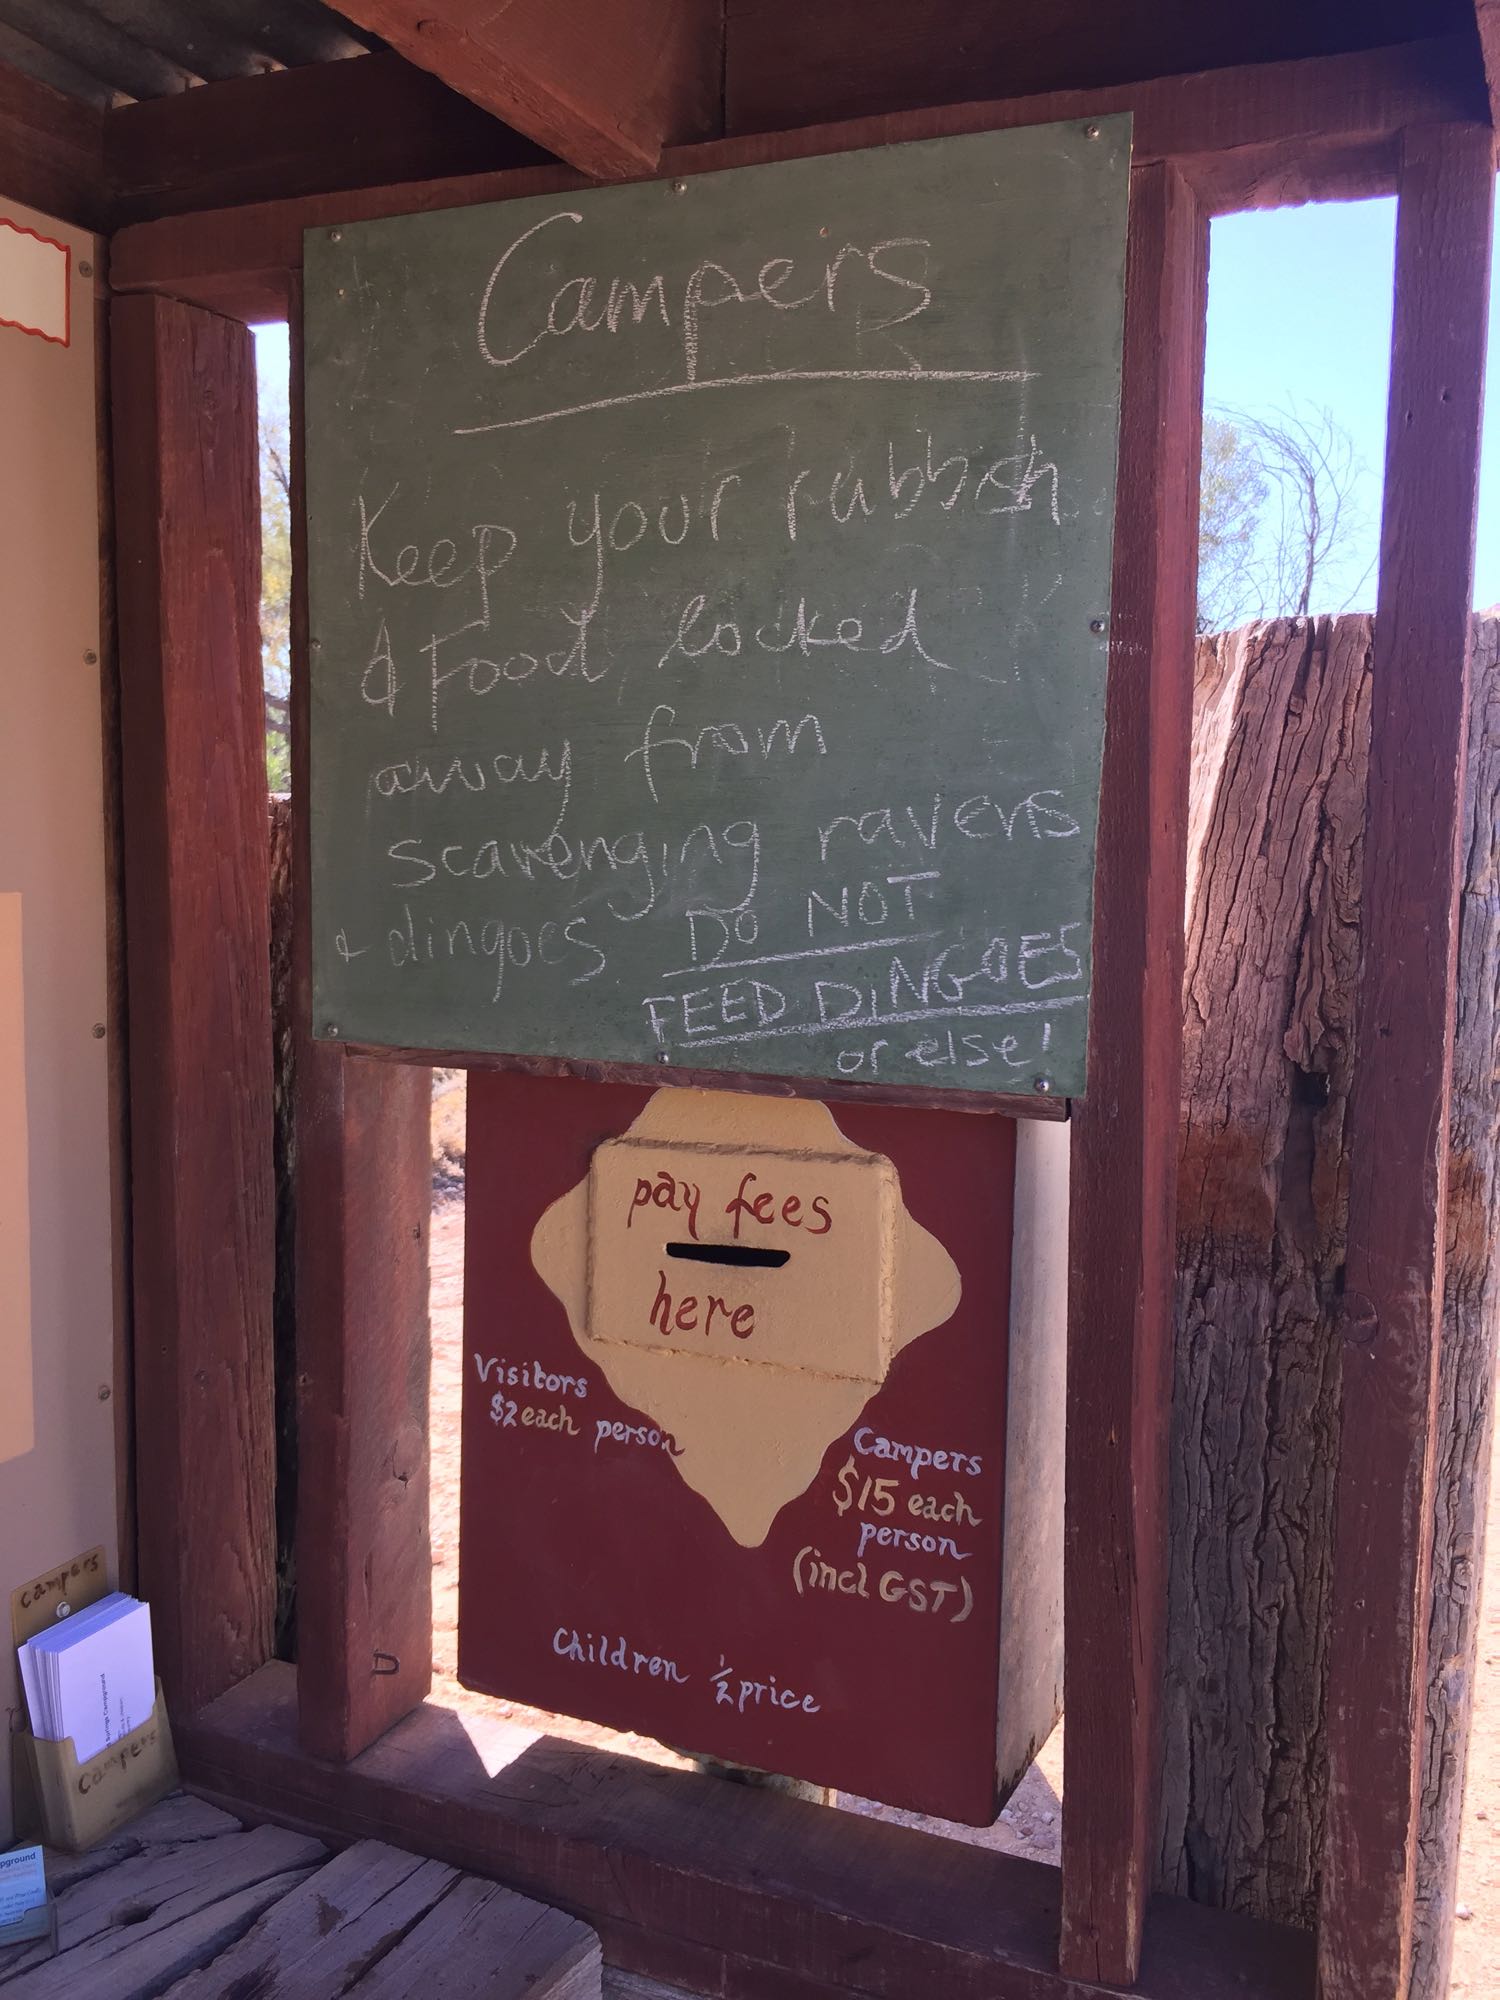 Campers
Keep your rubbish
& Food locked
away from
scavenging ravens
& dingoes DO NOT
FEED DINGOES
or else!
pay fees
here
Visitors
$2 each person
Campers
$15 each
person
(incl GST)
Children 1/2 price
campers
Springs Campground
campers
pground